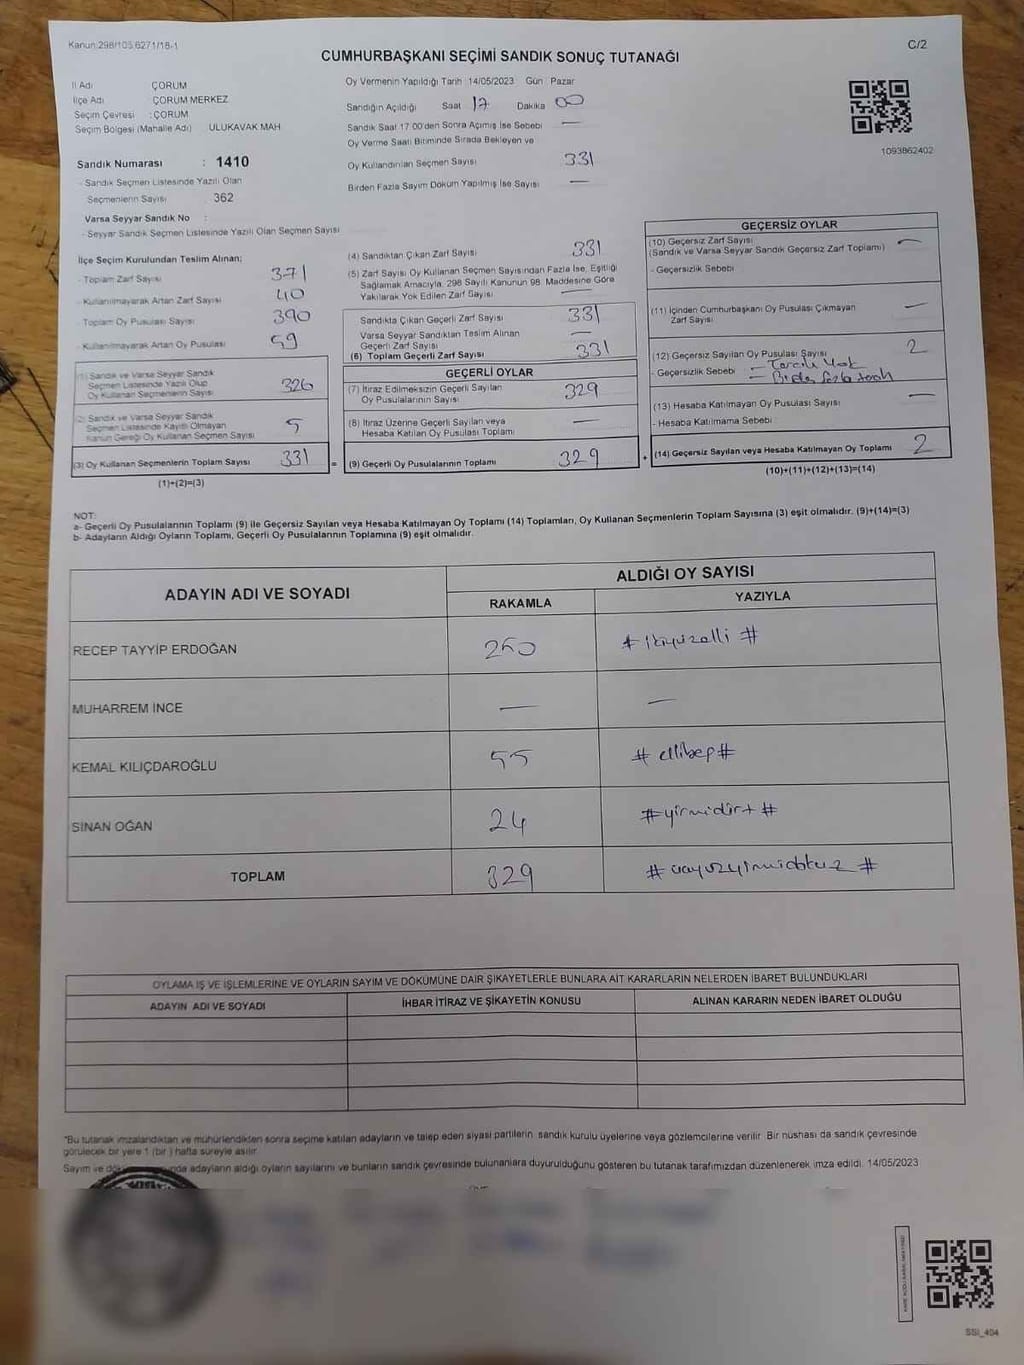 Kanun:298/105,6271/18-1
C/2
CUMHURBAŞKANI SEÇİMİ SANDIK SONUÇ TUTANAĞI
İl Adı ÇORUM
İlçe Adı ÇORUM MERKEZ
Seçim Çevresi : ÇORUM
Seçim Bölgesi (Mahalle Adı) ULUKAVAK MAH
Sandık Numarası : 1410
- Sandık Seçmen Listesinde Yazılı Olan
Seçmenlerin Sayısı 362
Varsa Seyyar Sandık No :
- Seyyar Sandık Seçmen Listesinde Yazılı Olan Seçmen Sayısı
Oy Vermenin Yapıldığı Tarih : 14/05/2023 Gün Pazar
Sandığın Açıldığı Saat 17 Dakika 00
Sandık Saat 17:00'den Sonra Açmış İse Sebebi —
Oy Verme Saati Bitiminde Sırada Bekleyen ve
Oy Kullandırılan Seçmen Sayısı 331
Birden Fazla Sayım Döküm Yapılmış İse Sayısı —
1093862402
İlçe Seçim Kurulundan Teslim Alınan;
- Toplam Zarf Sayısı 371
- Kullanılmayarak Artan Zarf Sayısı 40
- Toplam Oy Pusulası Sayısı 390
- Kullanılmayarak Artan Oy Pusulası 59
(1) Sandık ve Varsa Seyyar Sandık
Seçmen Listesinde Yazılı Olup
Oy Kullanan Seçmenlerin Sayısı 326
(2) Sandık ve Varsa Seyyar Sandık
Seçmen Listesinde Kayıtlı Olmayan
Kanun Gereği Oy Kullanan Seçmen Sayısı 5
(3) Oy Kullanan Seçmenlerin Toplam Sayısı 331
(1)+(2)=(3)
(4) Sandıktan Çıkan Zarf Sayısı 331
(5) Zarf Sayısı Oy Kullanan Seçmen Sayısından Fazla İse, Eşitliği
Sağlamak Amacıyla, 298 Sayılı Kanunun 98. Maddesine Göre
Yakılarak Yok Edilen Zarf Sayısı —
Sandıkta Çıkan Geçerli Zarf Sayısı 331
Varsa Seyyar Sandıktan Teslim Alınan
Geçerli Zarf Sayısı —
(6) Toplam Geçerli Zarf Sayısı 331
GEÇERLİ OYLAR
(7) İtiraz Edilmeksizin Geçerli Sayılan
Oy Pusulalarının Sayısı 329
(8) İtiraz Üzerine Geçerli Sayılan veya
Hesaba Katılan Oy Pusulası Toplamı —
= (9) Geçerli Oy Pusulalarının Toplamı 329
GEÇERSİZ OYLAR
(10) Geçersiz Zarf Sayısı —
(Sandık ve Varsa Seyyar Sandık Geçersiz Zarf Toplamı)
- Geçersizlik Sebebi
(11) İçinden Cumhurbaşkanı Oy Pusulası Çıkmayan
Zarf Sayısı —
(12) Geçersiz Sayılan Oy Pusulası Sayısı 2
- Geçersizlik Sebebi - Tercih Yok
- Birden fazla tercih
(13) Hesaba Katılmayan Oy Pusulası Sayısı —
- Hesaba Katılmama Sebebi
+ (14) Geçersiz Sayılan veya Hesaba Katılmayan Oy Toplamı 2
(10)+(11)+(12)+(13)=(14)
NOT:
a- Geçerli Oy Pusulalarının Toplamı (9) ile Geçersiz Sayılan veya Hesaba Katılmayan Oy Toplamı (14) Toplamları, Oy Kullanan Seçmenlerin Toplam Sayısına (3) eşit olmalıdır. (9)+(14)=(3)
b- Adayların Aldığı Oyların Toplamı, Geçerli Oy Pusulalarının Toplamına (9) eşit olmalıdır.
ADAYIN ADI VE SOYADI
ALDIĞI OY SAYISI
RAKAMLA YAZIYLA
RECEP TAYYİP ERDOĞAN 250 # ikiyüzelli #
MUHARREM İNCE — —
KEMAL KILIÇDAROĞLU 55 # ellibeş #
SİNAN OĞAN 24 # yirmidört #
TOPLAM 329 # üçyüzyirmidokuz #
OYLAMA İŞ VE İŞLEMLERİNE VE OYLARIN SAYIM VE DÖKÜMÜNE DAİR ŞİKAYETLERLE BUNLARA AİT KARARLARIN NELERDEN İBARET BULUNDUKLARI
ADAYIN ADI VE SOYADI İHBAR İTİRAZ VE ŞİKAYETİN KONUSU ALINAN KARARIN NEDEN İBARET OLDUĞU
"Bu tutanak imzalandıktan ve mühürlendikten sonra seçime katılan adayların ve talep eden siyasi partilerin sandık kurulu üyelerine veya gözlemcilerine verilir. Bir nüshası da sandık çevresinde
görülecek bir yere 1 (bir) hafta süreyle asılır.
Sayım ve adayların aldığı oyların sayılarını ve bunların sandık çevresinde bulunanlara duyurulduğunu gösteren bu tutanak tarafımızdan düzenlenerek imza edildi. 14/05/2023
SSI_404